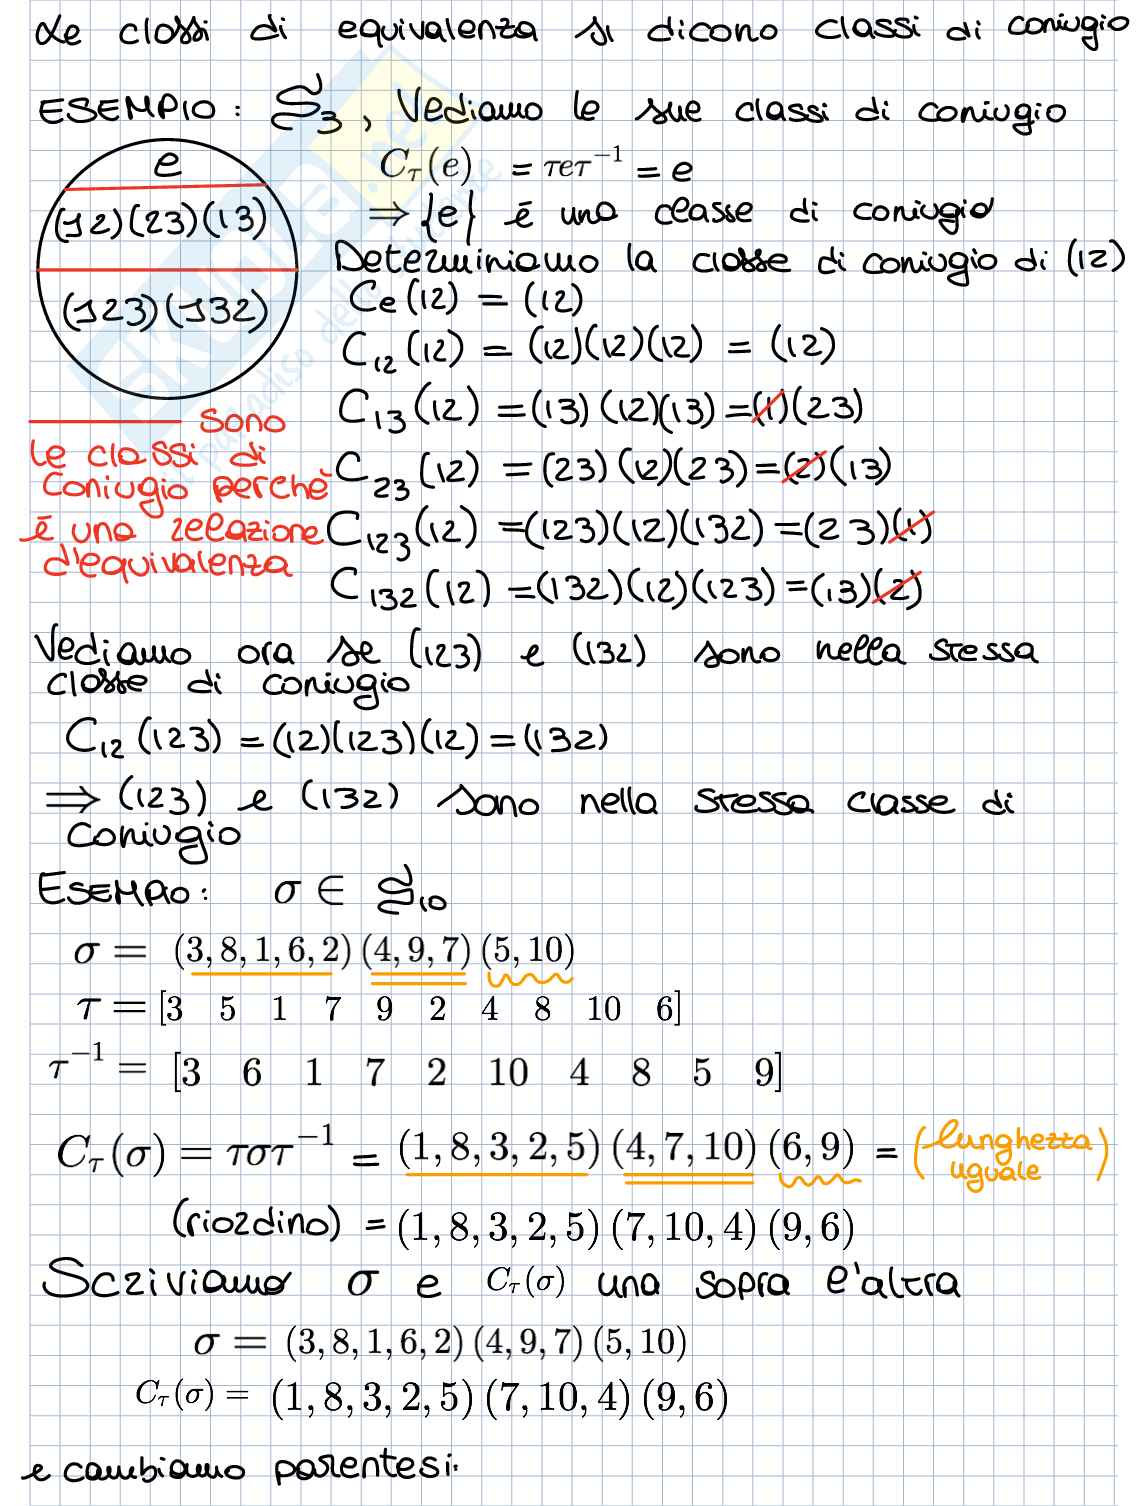 Le classi di equivalenza si dicono classi di coniugio
ESEMPIO: S₃, Vediamo le sue classi di coniugio
e
(12)(23)(13)
(123)(132)
C_τ(e) = τeτ⁻¹ = e
⇒ {e} è una classe di coniugio
Determiniamo la classe di coniugio di (12)
Ce(12) = (12)
C₁₂(12) = (12)(12)(12) = (12)
C₁₃(12) = (13)(12)(13) = (1)(23)
C₂₃(12) = (23)(12)(23) = (2)(13)
C₁₂₃(12) = (123)(12)(132) = (23)(1)
C₁₃₂(12) = (132)(12)(123) = (13)(2)
sono
le classi di
coniugio perchè
è una relazione
d'equivalenza
Vediamo ora se (123) e (132) sono nella stessa
classe di coniugio
C₁₂(123) = (12)(123)(12) = (132)
⇒ (123) e (132) sono nella stessa classe di
coniugio
ESEMPIO: σ ∈ S₁₀
σ = (3, 8, 1, 6, 2)(4, 9, 7)(5, 10)
τ = [3 5 1 7 9 2 4 8 10 6]
τ⁻¹ = [3 6 1 7 2 10 4 8 5 9]
C_τ(σ) = τστ⁻¹ = (1, 8, 3, 2, 5)(4, 7, 10)(6, 9) = (lunghezza
uguale)
(riordino) = (1, 8, 3, 2, 5)(7, 10, 4)(9, 6)
Scriviamo σ e C_τ(σ) una sopra l'altra
σ = (3, 8, 1, 6, 2)(4, 9, 7)(5, 10)
C_τ(σ) = (1, 8, 3, 2, 5)(7, 10, 4)(9, 6)
e cambiamo parentesi.